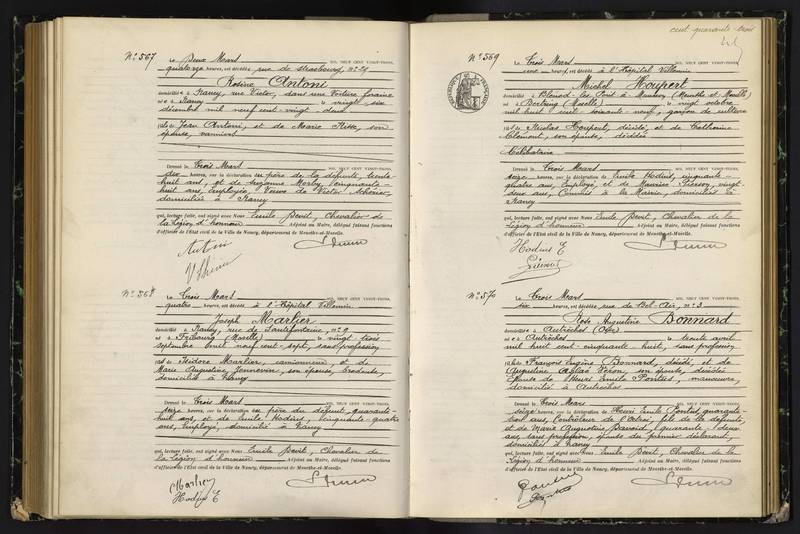 cent quarante-trois
N° 567
Le Deux Mars MIL NEUF CENT VINGT-TROIS,
quatorze heures, est décédée rue de Strasbourg, n°
Antoni
domiciliée à Nancy, rue Victor, dans une Voiture foraine
née à Nancy le vingt-six
décembre mil neuf cent vingt-deux
fille de Jean Antoni, et de Marie son
épouse,
Dressé le trois Mars MIL NEUF CENT VINGT-TROIS,
dix heures, sur la déclaration du père de la défunte, trente-
huit ans, et de Suzanne cinquante-
huit ans, employée, Veuve de Victor
domiciliés à Nancy
qui, lecture faite, ont signé avec Nous Emile Chevalier de
la Légion d'honneur Adjoint au Maire, délégué faisant fonctions
d'officier de l'Etat civil de la Ville de Nancy, département de Meurthe-et-Moselle.
Antoni
N° 568
Le trois Mars MIL NEUF CENT VINGT-TROIS,
quatre heures, est décédé à l'Hôpital Villemin
Joseph Marlier
domicilié à Nancy, rue de n° 9
né à Fribourg (Moselle) le vingt trois
septembre mil neuf cent sept, sans profession
fils de Isidore Marlier, camionneur et de
Marie Augustine son épouse, brodeuse,
domiciliés à Nancy
Dressé le trois Mars MIL NEUF CENT VINGT-TROIS,
seize heures, sur la déclaration du père du défunt, quarante-
huit ans, et de Emile Hodius, cinquante-quatre
ans, Employé, domicilié à Nancy
qui, lecture faite, ont signé avec Nous Emile Chevalier de
la Légion d'honneur Adjoint au Maire, délégué faisant fonctions
d'officier de l'Etat civil de la Ville de Nancy, département de Meurthe-et-Moselle.
Marlier
Hodius E
N° 569
Le trois Mars MIL NEUF CENT VINGT-TROIS,
une heure, est décédé à l'Hôpital Villemin
Michel Houpert
domicilié à Blénod les Pont à Mousson (Meurthe et Moselle)
né à (Moselle) le vingt octobre
mil huit cent soixante-neuf, garçon de culture
fils de Nicolas Houpert, décédé, et de Catherine
Clément, son épouse, décédée
Célibataire
Dressé le trois Mars MIL NEUF CENT VINGT-TROIS,
seize heures, sur la déclaration de Emile Hodius, cinquante-
quatre ans, Employé, et de Maurice vingt-
deux ans, Commis à la Mairie, domiciliés à
Nancy
qui, lecture faite, ont signé avec Nous Emile Chevalier de la
Légion d'honneur Adjoint au Maire, délégué faisant fonctions
d'officier de l'Etat civil de la Ville de Nancy, département de Meurthe-et-Moselle.
Hodius E
N° 570
Le trois Mars MIL NEUF CENT VINGT-TROIS,
six heures, est décédée rue de Bel-Air, n° 3
Rose Augustine Bonnard
domiciliée à Autrèches (Oise)
née à Autrèches le trente avril
mil huit cent cinquante-huit, sans profession
fille de François Eugène Bonnard, décédé, et de
Augustine Aglaé son épouse, décédée
Epouse de Henri Emile manœuvre,
domicilié à Autrèches
Dressé le trois Mars MIL NEUF CENT VINGT-TROIS,
seize heures, sur la déclaration de Henri Emile quarante-
trois ans, Contrôleur de fils de la défunte,
et de Marie Augustine quarante-deux
ans, sans profession, épouse du premier déclarant,
domiciliés à Nancy
qui, lecture faite, ont signé avec Nous Emile Chevalier de la
Légion d'honneur Adjoint au Maire, délégué faisant fonctions
d'officier de l'Etat civil de la Ville de Nancy, département de Meurthe-et-Moselle.